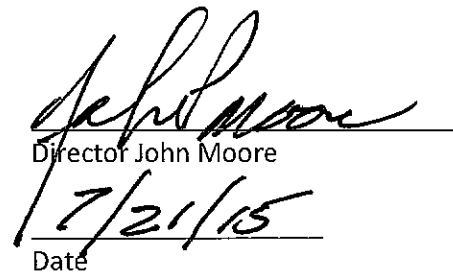 John Moore
Director John Moore
7/21/15
Date